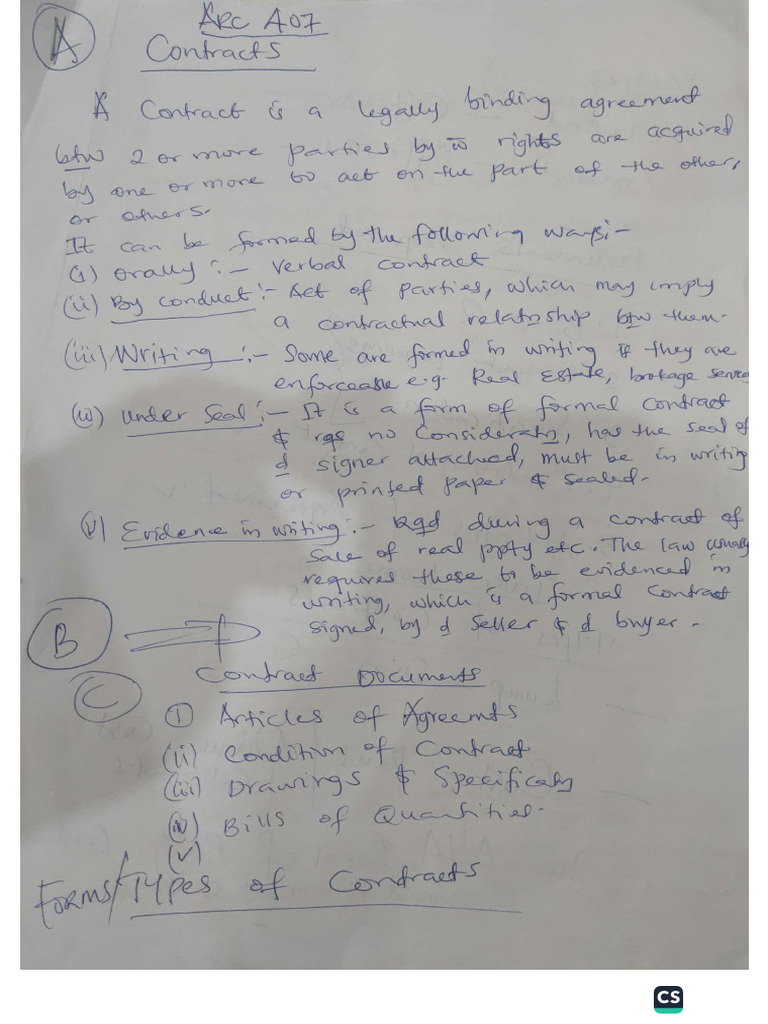 A
ARC 407
Contracts
A Contract is a legally binding agreement
btw 2 or more parties by w rights are acquired
by one or more to act on the part of the other,
or others.
It can be formed by the following ways:-
(i) Orally :- Verbal contract
(ii) By conduct :- Act of parties, which may imply
a contractual relatnship btw them.
(iii) Writing :- Some are formed in writing if they are
enforceable e.g. Real Estate, brokage services
(iv) Under Seal :- It is a form of formal contract
& rqs no consideratn, has the seal of
d signer attached, must be in writing
or printed paper & sealed.
(v) Evidence in writing :- Rqd during a contract of
Sale of real ppty etc. The law usually
requires these to be evidenced in
writing, which is a formal contract
signed, by d seller & d buyer.
B
C
Contract Documents
(i) Articles of Agreemts
(ii) Condition of Contract
(iii) Drawings & Specificatn
(iv) Bills of Quantities.
(v)
Forms/Types of Contracts
CS